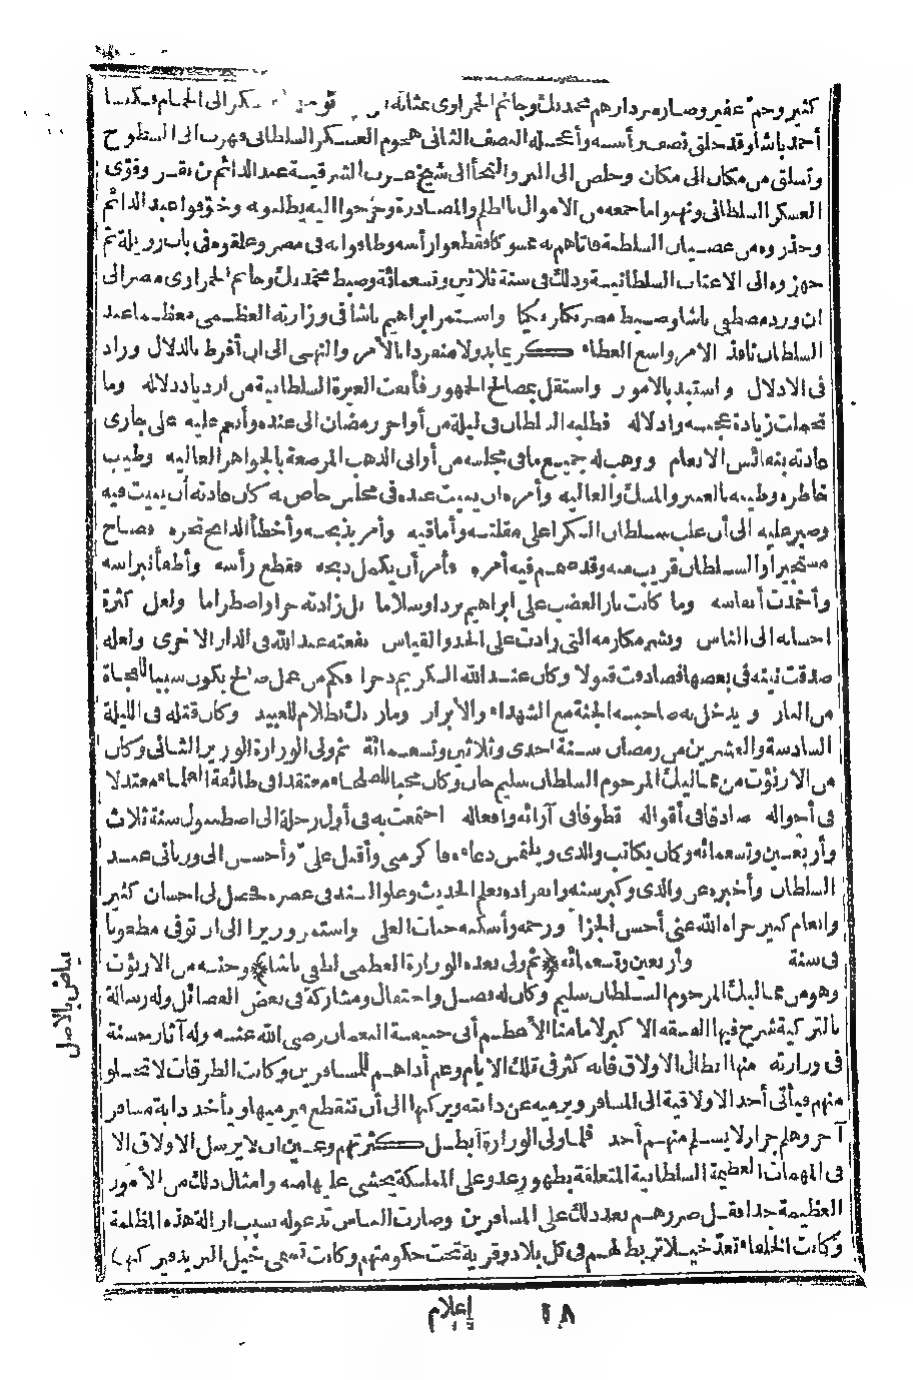 كثير وجم غفير وصار سردارهم محمد بك وجانم الحمراوى عسكر الى الحمام فكبسا
أحمد باشا وقد حلق نصف رأسه وأعجله النصف الثانى هجوم العسكر السلطانى فهرب الى السطوح
وتسلق من مكان الى مكان وخلص الى البر والتجأ الى شيخ عرب الشرقية عبد الدائم بن بقر وقوى
العسكر السلطانى ونهبوا ما جمعه من الاموال بالظلم والمصادرة وخرجوا اليه يطلبونه وخوفوا عبد الدائم
وحذروه من عصيان السلطنة فأتاهم به ممسوكا فقطعوا رأسه وطافوا به فى مصر وعلقوه فى باب زويلة ثم
جهزوه الى الاعتاب السلطانية وذلك فى سنة ثلاثين وتسعمائة وضبط محمد بك وجانم الحمراوى مصر الى
ان ورد مصطفى باشا وضبط مصر واستمر ابراهيم باشا فى وزارته العظمى معظما عند
السلطان نافذ الامر واسع العطاء منفردا بالأمر والنهى الى ان أفرط بالدلال وزاد
فى الادلال واستبد بالامور واستقل بمصالح الجمهور فأنفت الغيرة السلطانية من ازدياد دلاله وما
تحملت زيادة عجبه وادلاله فطلبه السلطان فى ليلة من أواخر رمضان الى عنده وأنعم عليه على جارى
عادته بنفائس الانعام ووهب له جميع ما فى مجلسه من أوانى الذهب المرصعة بالجواهر العاليه وطيب
خاطره وطيبه بالعنبر والمسك والغاليه وأمره ان يبيت عنده فى مجلس خاص به كان عادته أن يبيت فيه
وصبر عليه الى أن غلب سلطان الكرا على مقلته وأماقيه وأمر بذبحه وأخطأ الذابح نحره فصاح
مستجيرا والسلطان قريب منه وقد همم فيه أمره فأمر أن يكمل ذبحه فقطع رأسه وأطفأ نبراسه
وأخمدت أنفاسه وما كانت نار الغضب على ابراهيم بردا وسلاما بل زادته حرا واضطراما ولعل كثرة
احسانه الى الناس ونشر مكارمه التى زادت على الحد والقياس نفعته عند الله فى الدار الاخرى ولعله
صدقت نيته فى بعضها فصادفت قبولا وكان عند الله الكريم ذخرا فكم من عمل صالح يكون سببا للنجاة
من النار ويدخل به صاحبه الجنة مع الشهداء والأبرار وما ربك بظلام للعبيد وكان قتله فى الليلة
السادسة والعشرين من رمضان سنة احدى وثلاثين وتسعمائة ثم ولى الوزارة الوزير الثانى وكان
من الارنؤت من مماليك المرحوم السلطان سليم خان وكان محبا للصلحاء معتقدا فى طائفة العلماء معتدلا
فى أحواله صادقا فى أقواله فى آرائه وافعاله اجتمعت به فى أول رحلة الى اصطنبول سنة ثلاث
وأربعين وتسعمائه وكان يكاتب والدى ويلتمس دعاءه فأكرمنى وأقبل على وأحسن الى وربانى عند
السلطان وأخبره عن والدى وكبر سنه وانفراده بعلم الحديث وعلو السند فى عصره فحصل لى احسان كثير
وانعام كبير جزاه الله عنى أحسن الجزا ورحمه وأسكنه جنات العلى واستمر وزيرا الى ان توفى مطعونا
فى سنة وأربعين وتسعمائه ﴿ثم ولى بعده الوزارة العظمى لطفى باشا﴾ وجنسه من الارنؤت
وهو من مماليك المرحوم السلطان سليم وكان له فضل واحتفال ومشاركة فى بعض الفضائل وله رسالة
بالتركية شرح فيها الفقه الاكبر لامامنا الأعظم أبى حنيفة النعمان رضى الله عنه وله آثار حسنة
فى وزارته منها ابطال الاولاق فانه كثر فى تلك الايام وعم أذاهم للمسافرين وكانت الطرقات لا تخلو
منهم فيأتى أحد الاولاقية الى المسافر ويرميه عن دابته ويركبها الى أن تنقطع فيرميها ويأخذ دابة مسافر
آخر وهلم جرا لا يسلم منهم أحد فلما ولى الوزارة أبطل كثرتهم وعين ان لا يرسل الاولاق الا
فى المهمات العظيمة السلطانية المتعلقة بظهور عدو على المملكة يخشى عليها منه وامثال ذلك من الأمور
العظيمة جدا فقل ضررهم بعد ذلك على المسافرين وصارت الناس تدعو له بسبب ازالة هذه المظلمة
وكانت الخلفاء تعد خيلا تربط لهم فى كل بلاد وقرية تحت حكومتهم وكانت تسمى خيل البريد فيركبها
بياض بالاصل
٨١ إعلام